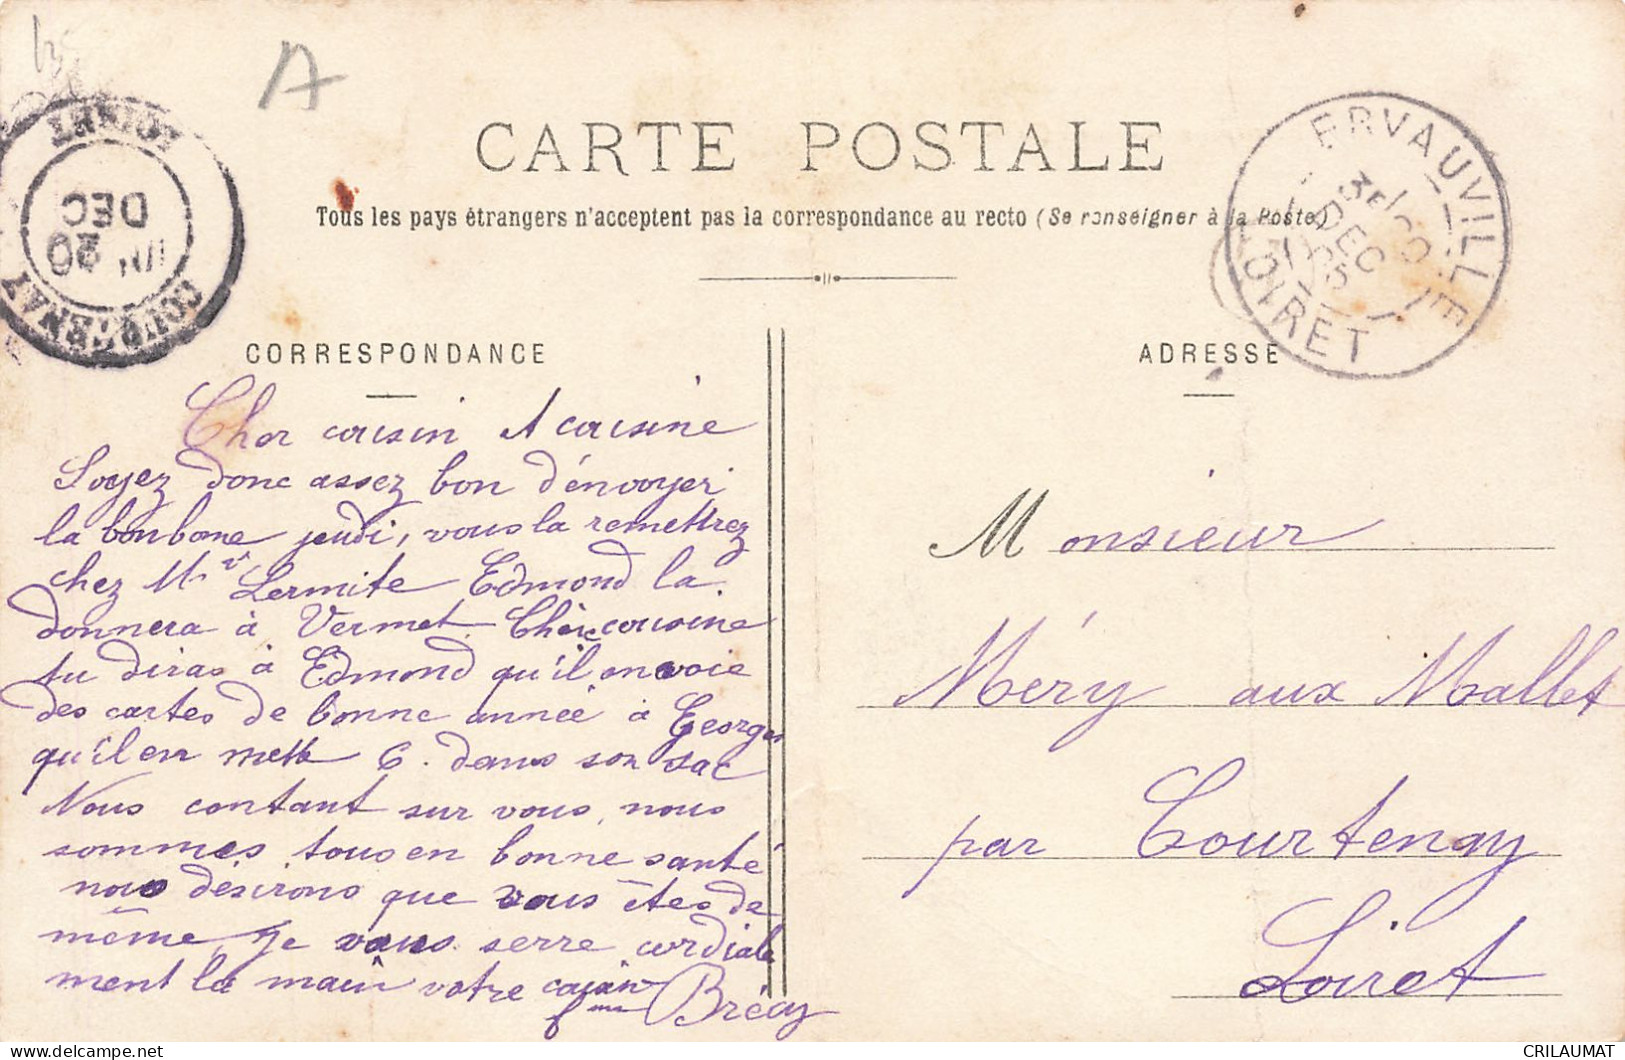 A
CARTE POSTALE
Tous les pays étrangers n'acceptent pas la correspondance au recto (Se renseigner à la Poste)
COURTENAY
LOIRET
20
DEC
ERVAUVILLE
LOIRET
DEC
CORRESPONDANCE
Cher cousin et cousine
Soyez donc assez bon d'énvoyer
la bonbone jeudi, vous la remettrez
chez Mr Lermite Edmond la
donnera à Vermet. Chère cousine
tu diras à Edmond qu'il envoie
des cartes de bonne année à Georges
qu'il en mette 6. dans son sac
Nous contant sur vous, nous
sommes tous en bonne santé
nous désirons que vous êtes de
même, Je vous serre cordiale
ment la main votre cousin
fme Brécy
ADRESSE
Monsieur
Méry aux Mallets
par Courtenay
Loiret
CRILAUMAT